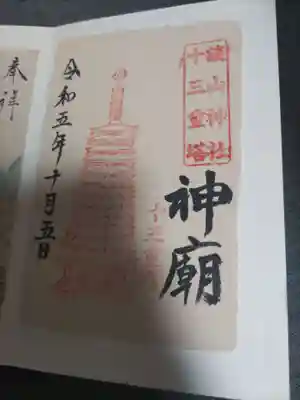 談山神社
十三重塔
神廟
令和五年十月五日
奉拝